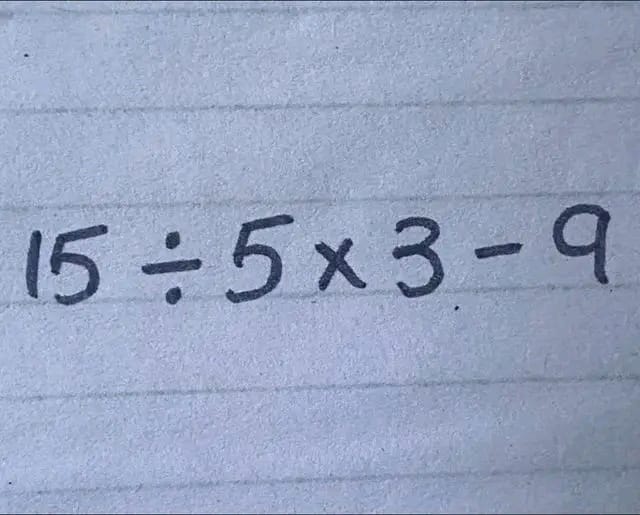 15 ÷ 5 × 3 - 9